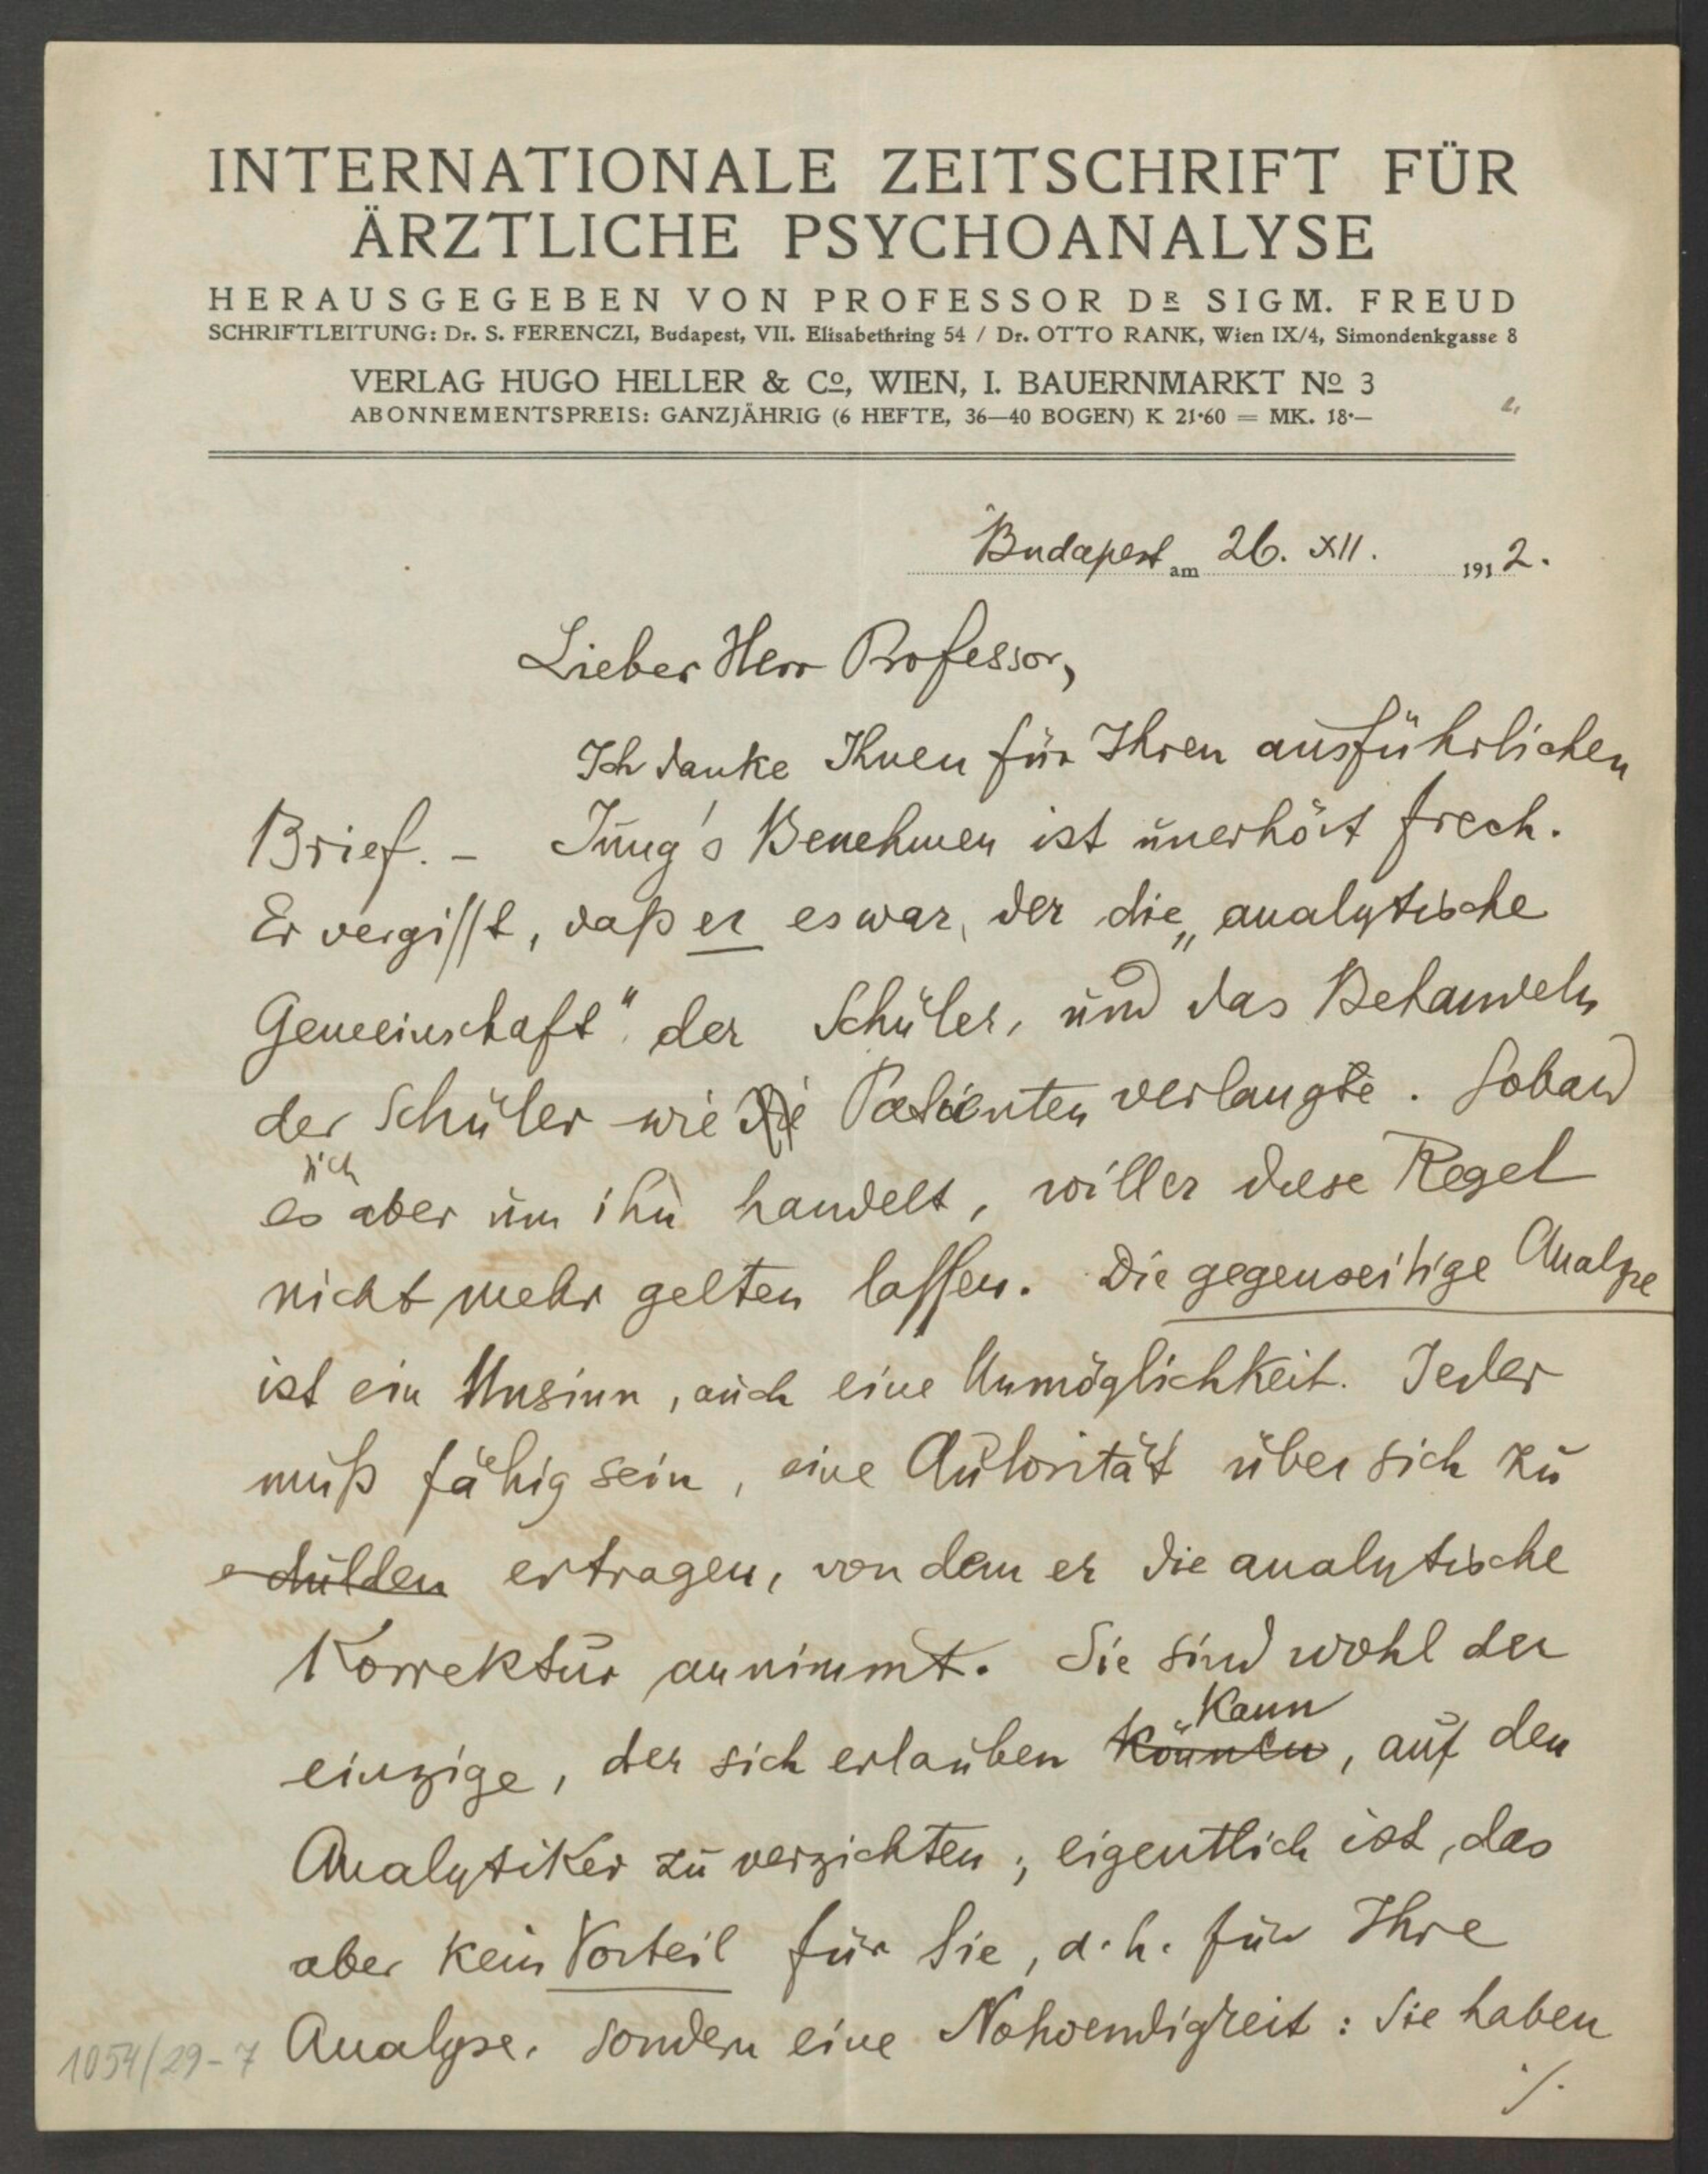 INTERNATIONALE ZEITSCHRIFT FÜR
ÄRZTLICHE PSYCHOANALYSE
HERAUSGEGEBEN VON PROFESSOR DR SIGM. FREUD
SCHRIFTLEITUNG: Dr. S. FERENCZI, Budapest, VII. Elisabethring 54 / Dr. OTTO RANK, Wien IX/4, Simondenkgasse 8
VERLAG HUGO HELLER & Co, WIEN, I. BAUERNMARKT No 3
ABONNEMENTSPREIS: GANZJÄHRIG (6 HEFTE, 36—40 BOGEN) K 21·60 = MK. 18·—
Budapest am 26. XII. 1912.
Lieber Herr Professor,
Ich danke Ihnen für Ihren ausführlichen
Brief. – Jung's Benehmen ist unerhört frech.
Er vergißt, daß er es war, der die „analytische
Gemeinschaft" der Schüler, und das Behandeln
der Schüler wie Patienten verlangte. Sobald
es sich aber um ihn handelt, will er diese Regel
nicht mehr gelten lassen. Die gegenseitige Analyse
ist ein Unsinn, auch eine Unmöglichkeit. Jeder
muß fähig sein, eine Autorität über sich zu
dulden ertragen, von dem er die analytische
Korrektur annimmt. Sie sind wohl der
einzige, der sich erlauben können kann, auf den
Analytiker zu verzichten; eigentlich ist, das
aber kein Vorteil für Sie, d.h. für Ihre
Analyse, sondern eine Nohwendigkeit: Sie haben
./.
1054/29-7